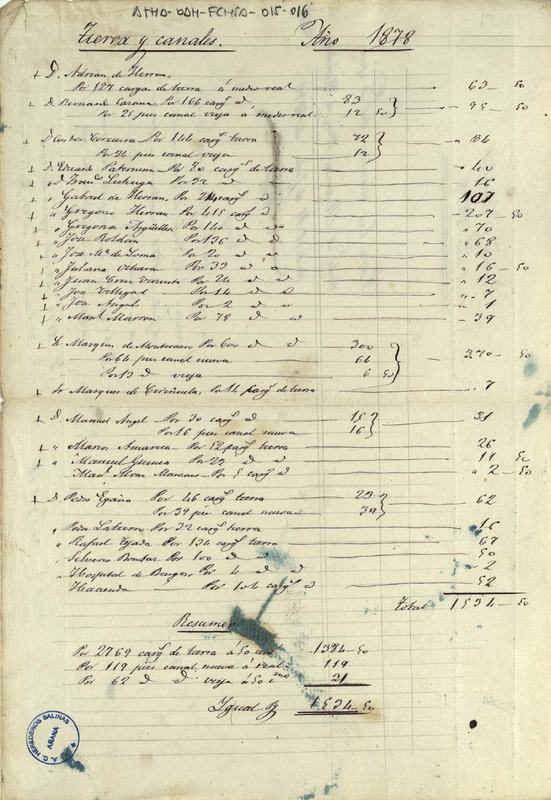 ATHA-DAH-FCMSA-015-016
Tierra y canales. Año 1878
+ D. Adrian de Herran,
Por 127 cargas de tierra á medio real 63-50
+ D. Bernardo Por 166 carg.s d 83
Por 25 pies canal vieja á medio real 12 50 95-50
+ D. Corcuera Por 144 carg.s tierra 72 84
Por 24 pies canal vieja 12
+ D. Eduardo Paternina Por 80 carg.s de tierra 40
" Lechuga Por 32 d 16
" Gabriel de Herran, Por 214 carg.s d 107
" Gregorio Herran Por 415 carg.s d 207-50
" Gregoria Argüelles Por 140 d 70
" José Roldan Por 136 d d 68
" José M.a de Loma Por 20 d 10
" Juliana Ochara Por 33 d 16-50
" Juan Cruz Por 24 d 12
" José Villegas Por 14 d d 7
" José Angel Por 2 d 1
" Marron Por 78 d 39
+ Sr Marques de Montecarro Por 600 d d 300
Por 64 pies canal nueva 64 370-50
Por 13 d vieja 6 50
+ Sr Marques de Por 14 carg.s de tierra 7
+ D. Manuel Angel Por 30 carg.s d 15 31
Por 16 pies canal nueva 16
" Marcos Por 52 carg.s tierra 26
" Manuel Guinea Por 23 d d 11 50
Manzanos Por 5 carg.s d 2-50
+ D. Pedro Egaña Por 46 carg.s tierra 23 62
Por 39 pies canal nueva 39
" Por 32 carg.s tierra 16
" Rafael Por 134 carg.s tierra 67
" Silverio Por 100 d d 50
" Hospital de Burgos Por 4 d d 2
Hacienda Por 104 carg.s d 52
Total 1534-50
Resumen
Por 2769 carg.s de tierra á 50 cent 1394-50
Por 119 pies canal nueva á real 119
Por 62 d d vieja á 50 c.mos 21
Igual 1534-50
A. D. HEREDEROS SALINAS
AÑANA